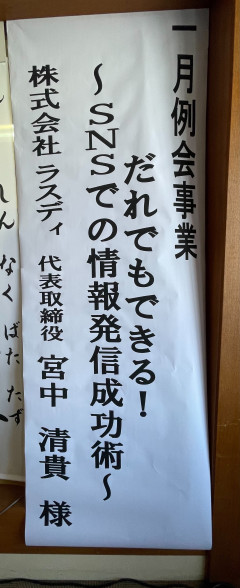 一月例会事業
だれでもできる！
～SNSでの情報発信成功術～
株式会社 ラスディ 代表取締役 宮中 清貴 様
れん なく ばた たず